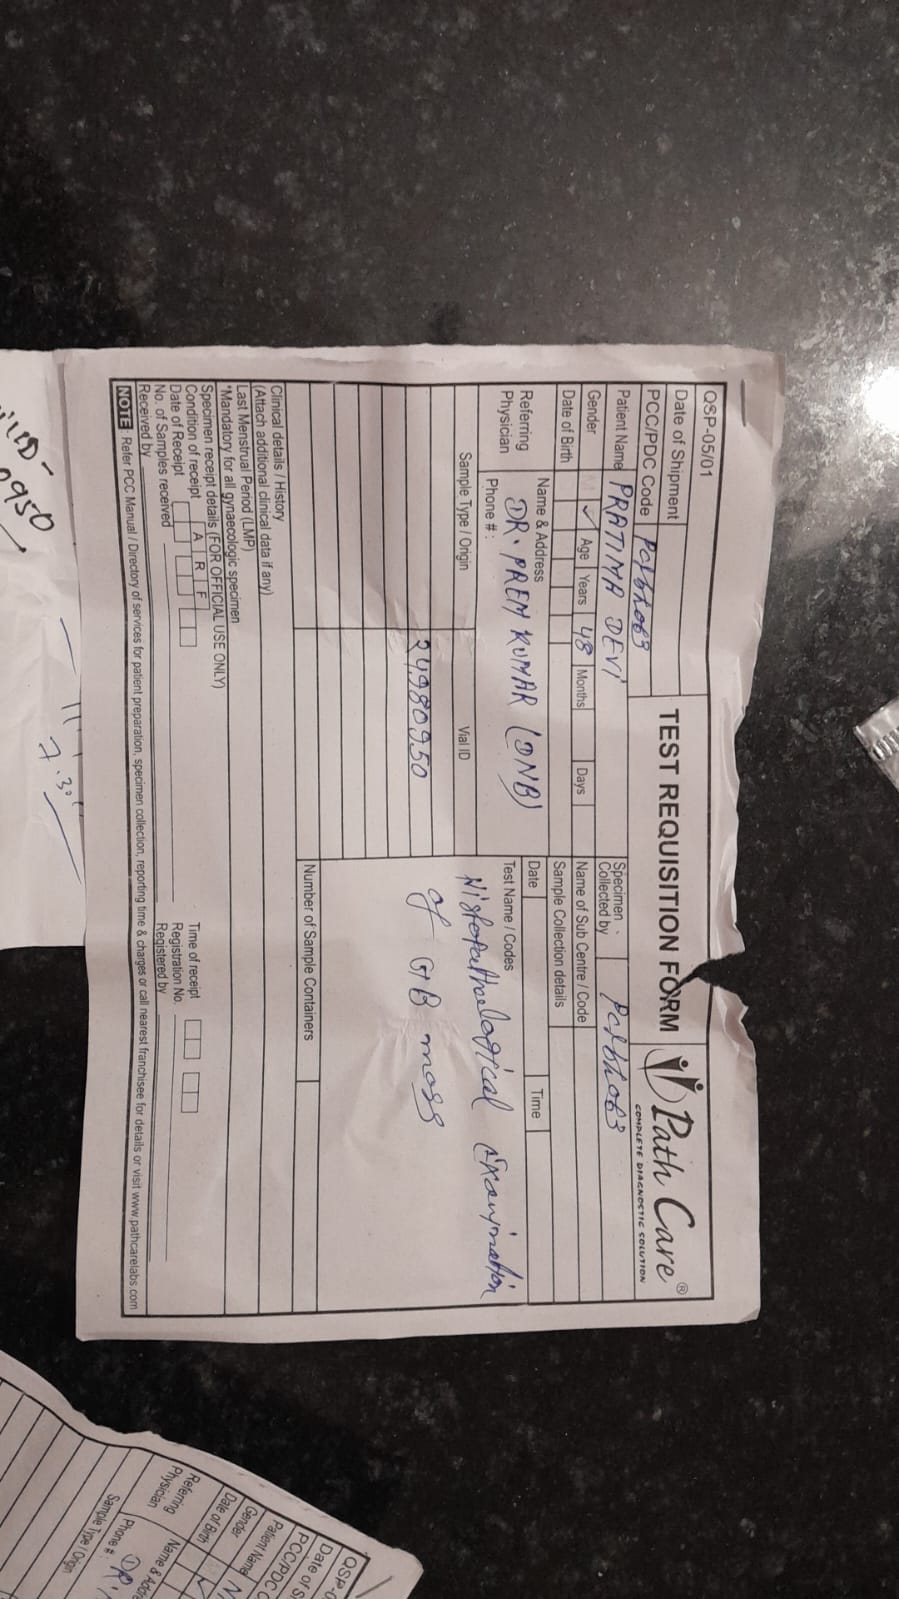 QSP-05/01
Date of Shipment
PCC/PDC Code
TEST REQUISITION FORM
Path Care®
COMPLETE DIAGNOSTIC SOLUTION
Patient Name PRATIMA DEVI
Specimen Collected by
Gender ✓ Age Years 48 Months Days
Name of Sub Centre / Code
Date of Birth
Sample Collection details
Referring Physician
Name & Address
DR. PREM KUMAR (DNB)
Phone # :
Date Time
Sample Type / Origin Vial ID
Test Name / Codes
24980950
Histopathological Examination
of GB mass
Number of Sample Containers
Clinical details / History
(Attach additional clinical data if any)
Last Menstrual Period (LMP)
*Mandatory for all gynaecologic specimen
Specimen receipt details (FOR OFFICIAL USE ONLY)
Condition of receipt A R F
Date of Receipt
Time of receipt
No. of Samples received
Registration No.
Received by
Registered by
NOTE Refer PCC Manual / Directory of services for patient preparation, specimen collection, reporting time & charges or call nearest franchisee for details or visit www.pathcarelabs.com
0950
7.30
QSP-0
Date of S
PCC/PDC C
Patient Name
Gender
Date of Birth
Referring Physician
Name & Addre
Phone # :
Sample Type / Origin